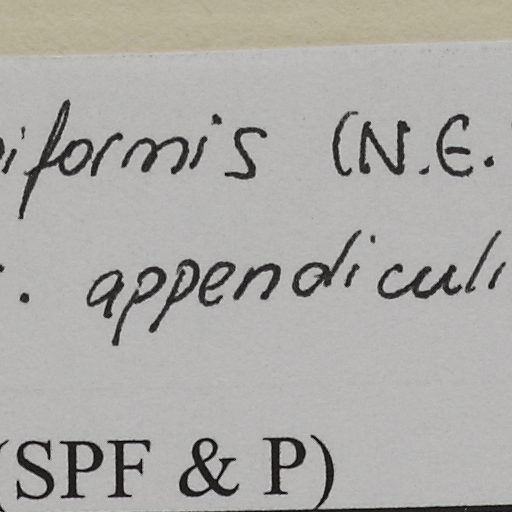 iformis (N.E.
. appendiculi
(SPF & P)